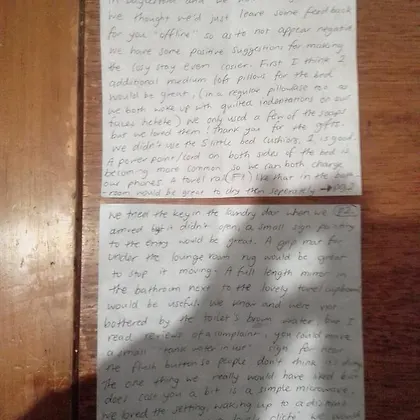 we thought we'd just leave some feedback
for you "offline" so as to not appear negative
we have some positive suggestions for making
the stay even cosier. First I think 2
additional medium loft pillows for the bed
would be great, (in a regular pillowcase too as
we both woke up with quilted indentations on our
faces hehehe) We only used a few of the soaps
but we loved them! Thank you for the gifts.
We didn't use the 5 little bed cushions, 2 is good.
A power point/cord on both sides of the bed is
becoming more common so we can both charge
our phones. 2 towel rails like that in the bath
-room would be great to dry them seperately → pg2
We tried the key in the laundry door when we
arrived & it didn't open, a small sign pointing
to the entry would be great. A grip mat for
under the loungeroom rug would be great
to stop it moving. A full length mirror in
the bathroom next to the lovely towel cupboard
would be useful. We know and were not
bothered by the toilet's brown water, but I
read reviews of a complaint, you could move
a small "tank water in use" sign for near
the flush button so people don't think it's dirty
The one thing we really would have used but
does cost you a bit is a simple microwave.
We loved the setting, waking up to a